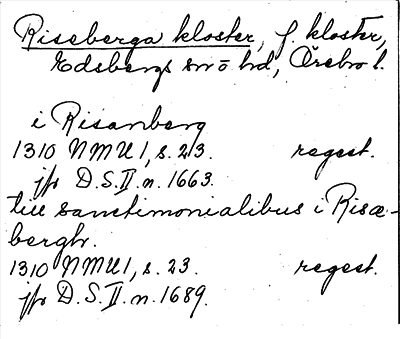 Riseberga kloster, f. kloster,
Edsbergs sn o hd, Örebro l.
i Risanberg
1310 NMU 1, s. 23. regest.
jfr D.S. II. n. 1663.
till sanctimonialibus i Risæ-
berghr.
1310 NMU 1, s. 23. regest.
jfr D.S. II. n. 1689.